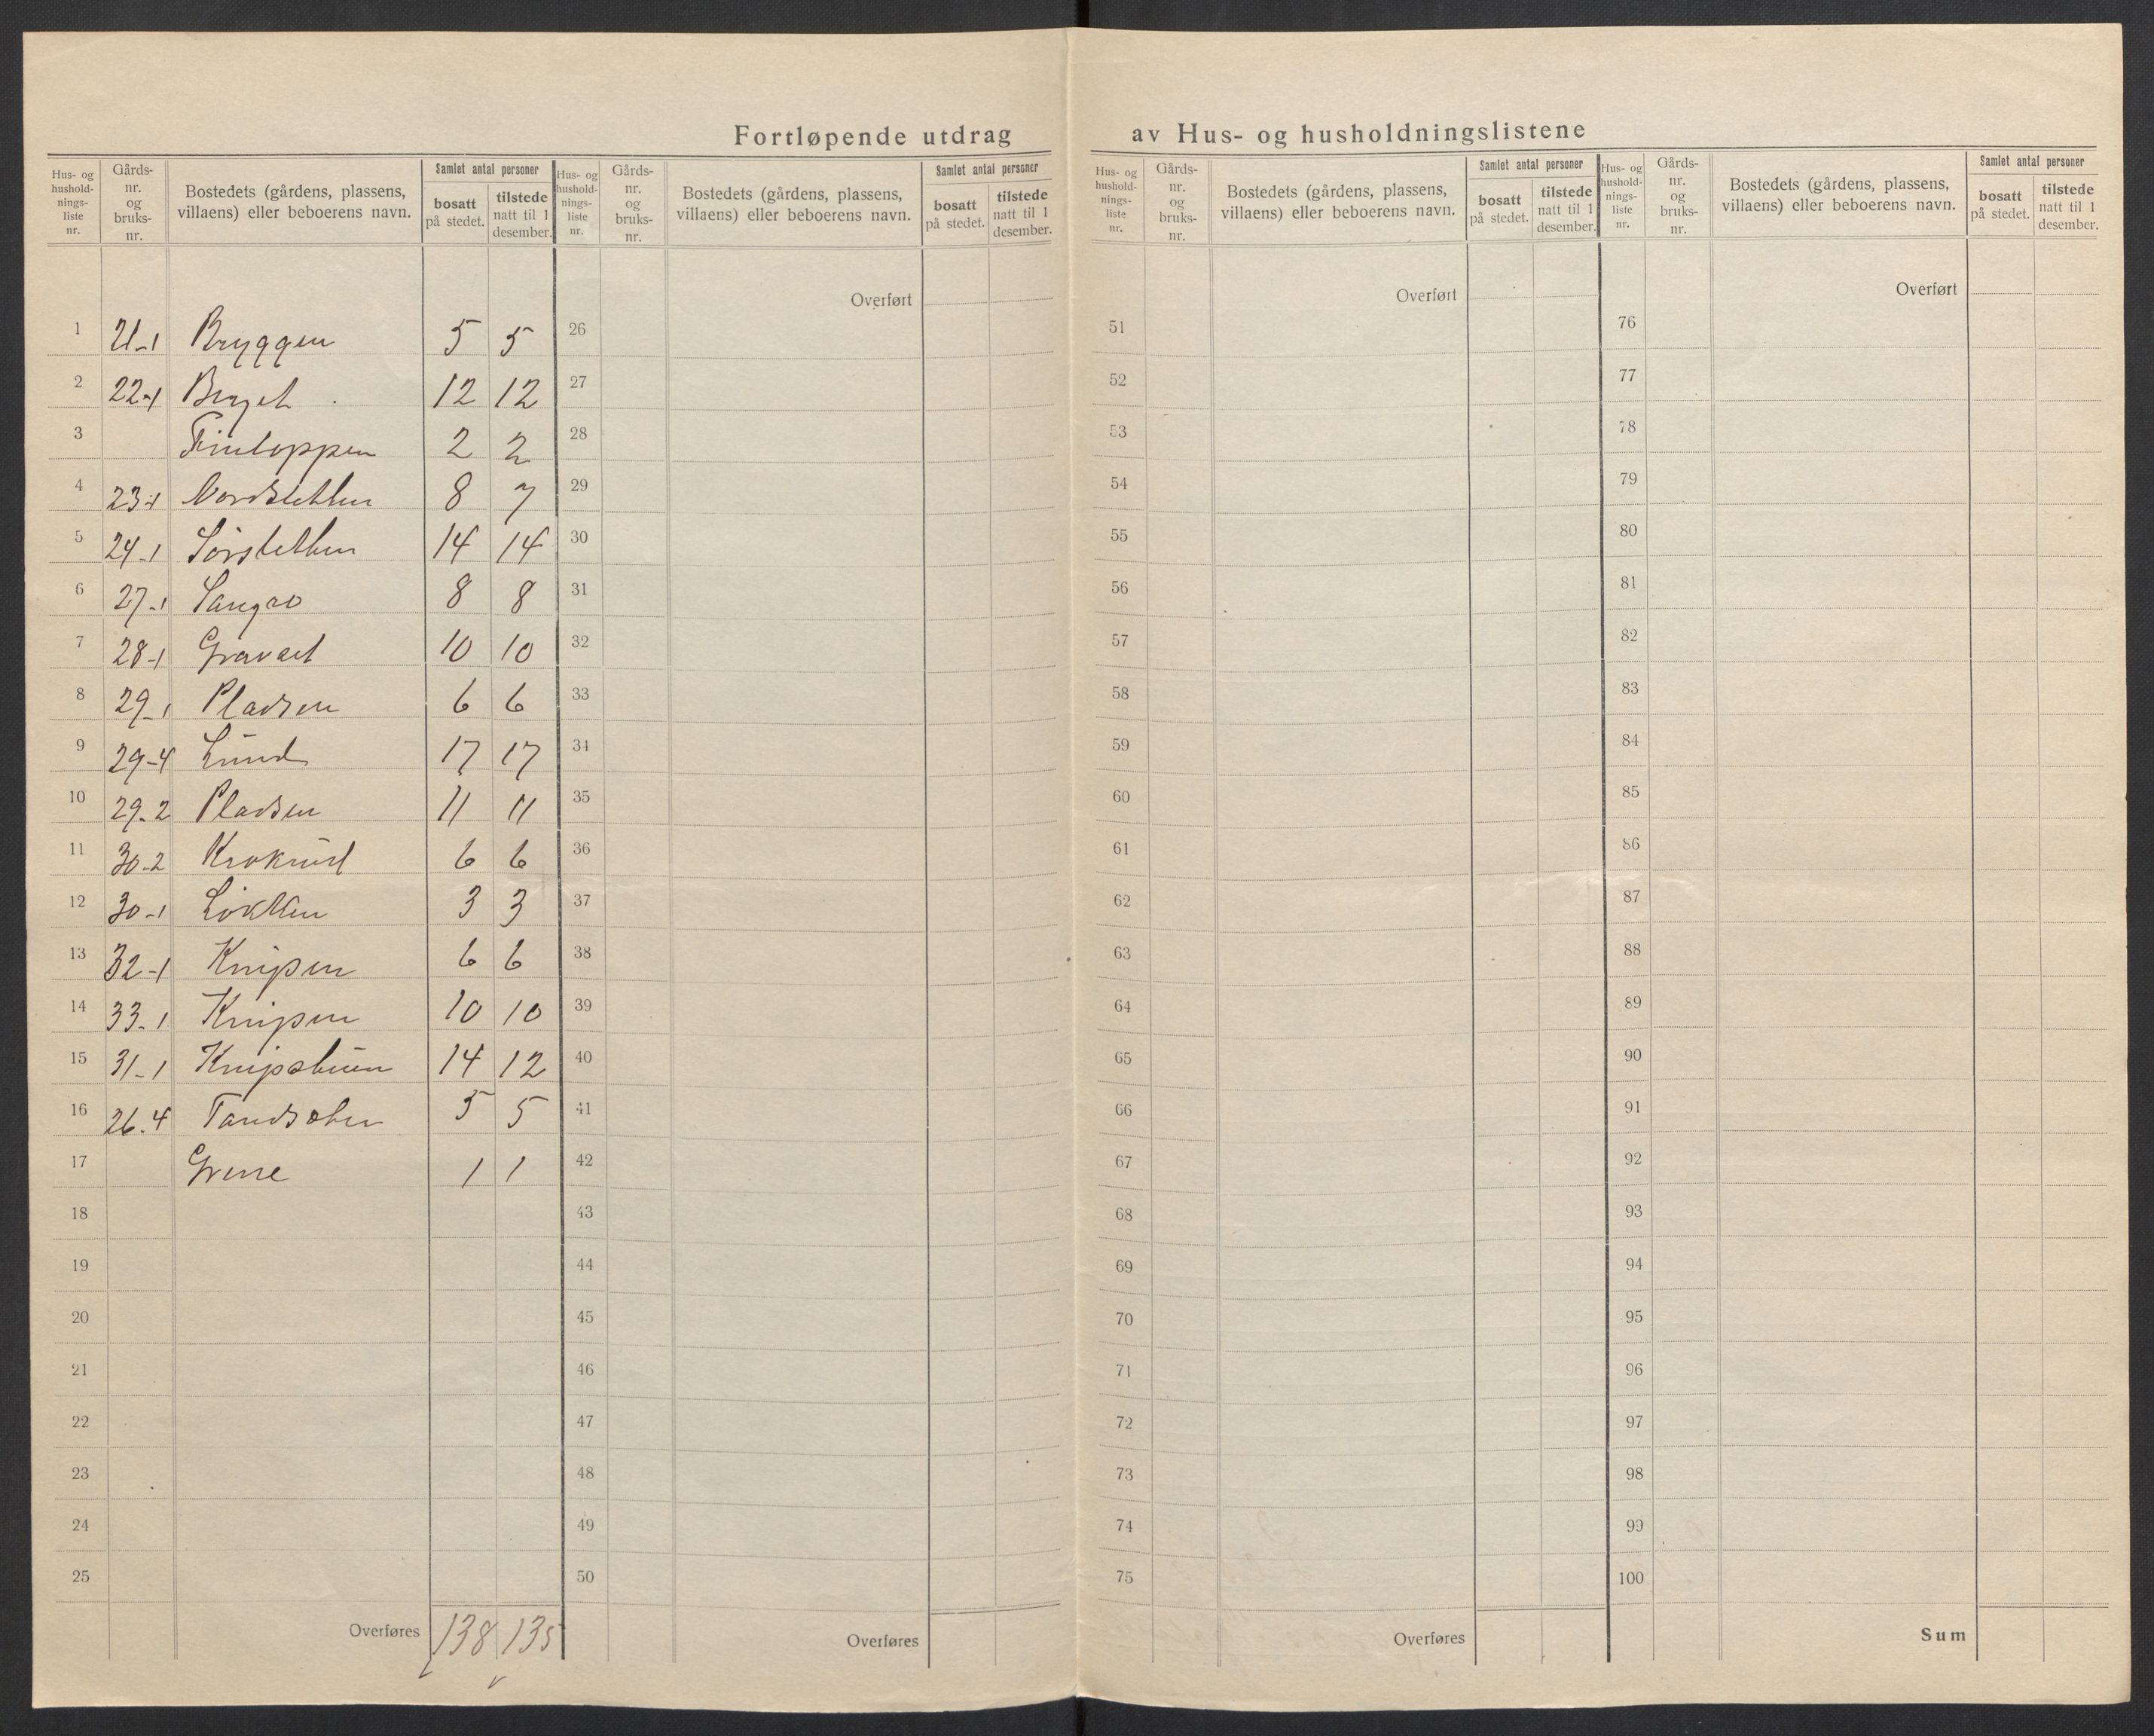 Fortløpende utdrag av Hus- og husholdningslistene
Hus- og hushold-nings-liste nr. Gårds-nr. og bruks-nr. Bostedets (gårdens, plassens, villaens) eller beboerens navn. Samlet antal personer bosatt på stedet. tilstede natt til 1 desember.
Hus- og hushold-nings-liste nr. Gårds-nr. og bruks-nr. Bostedets (gårdens, plassens, villaens) eller beboerens navn. Samlet antal personer bosatt på stedet. tilstede natt til 1 desember.
Hus- og hushold-nings-liste nr. Gårds-nr. og bruks-nr. Bostedets (gårdens, plassens, villaens) eller beboerens navn. Samlet antal personer bosatt på stedet. tilstede natt til 1 desember.
Hus- og hushold-nings-liste nr. Gårds-nr. og bruks-nr. Bostedets (gårdens, plassens, villaens) eller beboerens navn. Samlet antal personer bosatt på stedet. tilstede natt til 1 desember.
Overført Overført Overført
1 21-1 Bryggen 5 5 26 51 76
2 22-1 Berget 12 12 27 52 77
3 2 2 28 53 78
4 23-1 Nordstetten 8 7 29 54 79
5 24-1 Sørstetten 14 14 30 55 80
6 27-1 8 8 31 56 81
7 28-1 10 10 32 57 82
8 29-1 Pladsen 6 6 33 58 83
9 29-4 Lund 17 17 34 59 84
10 29-2 Pladsen 11 11 35 60 85
11 30-2 Krokrud 6 6 36 61 86
12 30-1 Løkken 3 3 37 62 87
13 32-1 Knipen 6 6 38 63 88
14 33-1 Knipen 10 10 39 64 89
15 31-1 Knipstuen 14 12 40 65 90
16 26.4 Tandsæter 5 5 41 66 91
17 1 1 42 67 92
18 43 68 93
19 44 69 94
20 45 70 95
21 46 71 96
22 47 72 97
23 48 73 98
24 49 74 99
25 50 75 100
Overføres 138 135 Overføres Overføres Sum